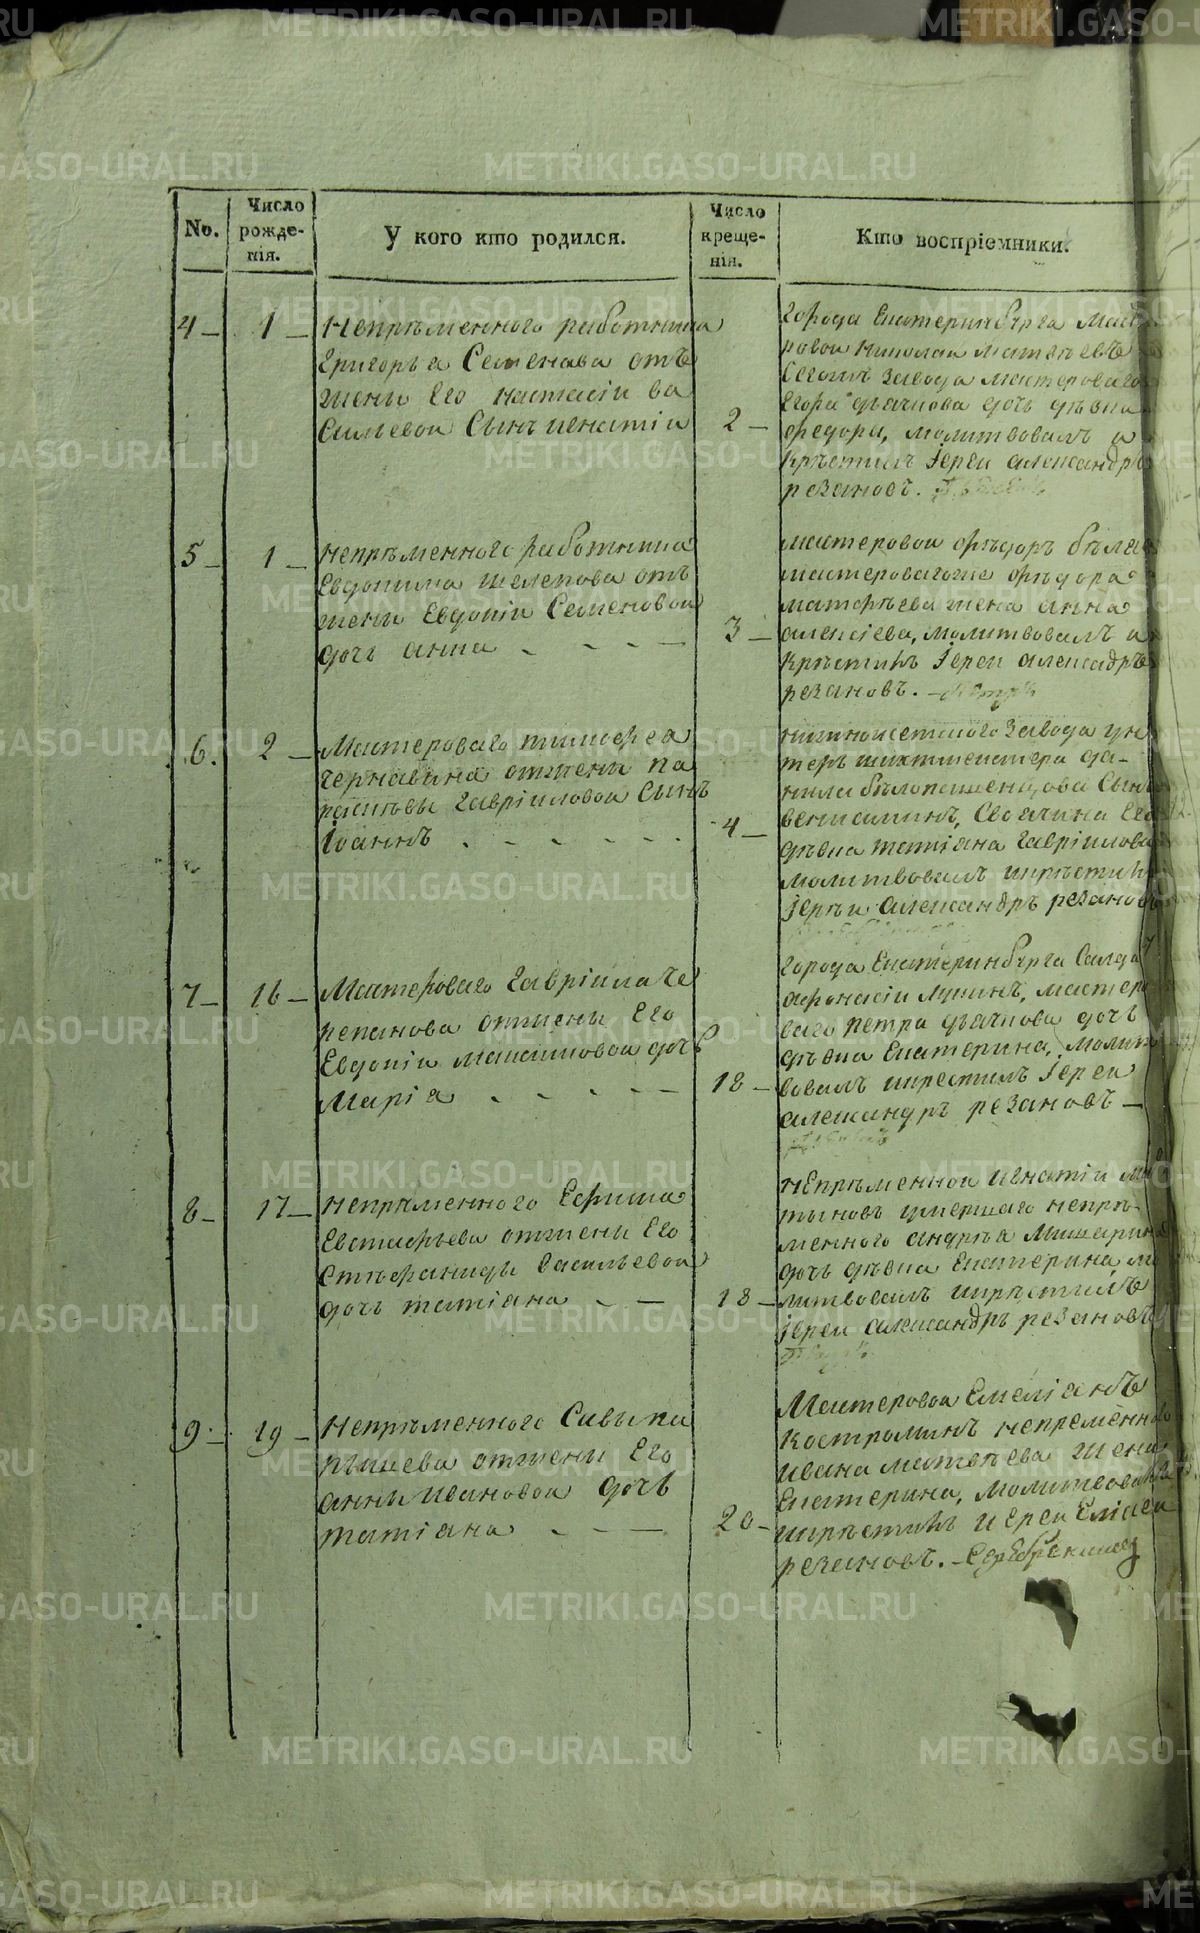 No.
Число рожде-нія.
У кого кто родился.
Число креще-нія.
Кто воспріемники.
4 – 1 –
Непремѣнного работника
Григорья Семенава отъ
жены Его настасіи ва
сильевой Сынъ игнатіи
2 –
города Екатеринбурга Масте
ровой николай матвѣевъ
Сегожъ завода мастероваго
Егора дьячкова дочь дѣвка
федора, молитвовалъ и
Крѣстилъ Іереи александръ
резановъ.
5 – 1 –
непремѣнного работника
Евдокима шелепова отъ
жены Евдокіи Семеновой
дочь анна
3 –
мастеровой фѣдоръ бѣла
мастеровагоже фѣдора
матфѣева жена анна
алексіева, молитвовалъ и
Крѣстилъ Іереи александръ
резановъ. – Петръ
6. 2 –
Мастероваго тимофеа
чернавина отжены па
расковьи гавріиловой Сынъ
Іоаннъ
4 –
нижноисетского завода ун
теръ шихтмейстера да-
нила бѣлопашенцова Сынъ
вениаминъ, Своячина Его
дѣвка татіана гавріилова
молитвовалъ икрѣстилъ
Іереи александръ резановъ
7 – 16 –
Мастероваго гавріила че
репанова отжены Его
Евдокіи максимовой дочь
Маріа
18 –
города Екатеринбурга Салдат
афонасіи лунинъ, мастеро
ваго петра дьячкова дочь
дѣвка Екатерина, молит
вовалъ икрестилъ Іереи
александръ резановъ –
8 – 17 –
непремѣнного Ефима
Евстафьева отжены Его
Стѣфаниды васильевой
дочь татіана
18 –
непремѣнной игнатіи ма
тыновъ умершаго непре-
мѣнного андрѣа Мишарина
дочь дѣвка Екатерина, мо
литвовалъ икрѣстилъ
Іереи александръ резановъ
9 – 19 –
Непремѣнного Савы ка
отжены Его
анны ивановой дочь
татіана
20 –
Мастеровой Емеліанъ
костроминъ непременного
ивана матвѣева жена
Екатерина, молитвовалъ
икрѣстилъ иереи
резановъ.
METRIKI.GASO-URAL.RU